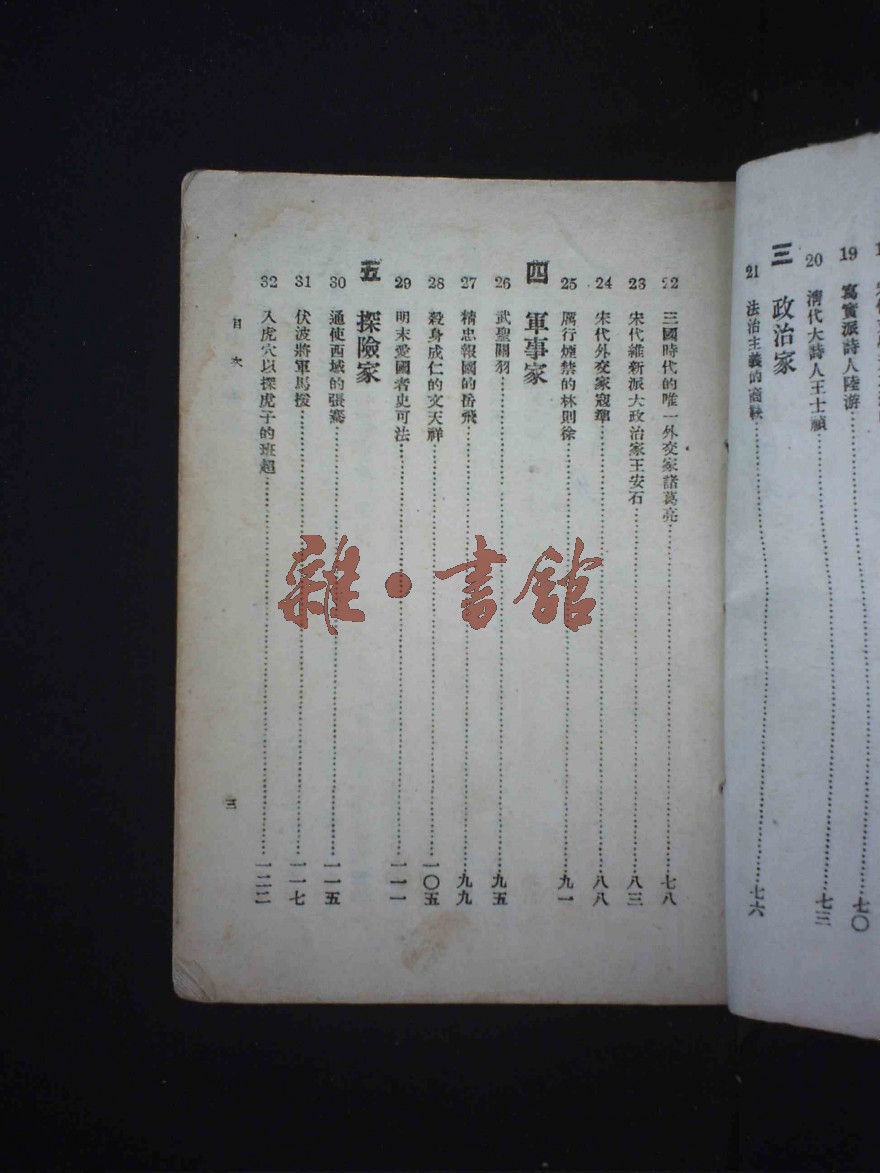 19 寫實派詩人陸游 七〇
20 淸代大詩人王士禎 七三
三 政治家
21 法治主義的商鞅 七六
22 三國時代的唯一外交家諸葛亮 七八
23 宋代維新派大政治家王安石 八三
24 宋代外交家寇準 八八
25 厲行煙禁的林則徐 九一
四 軍事家
26 武聖關羽 九五
27 精忠報國的岳飛 九九
28 殺身成仁的文天祥 一〇五
29 明末愛國者史可法 一一一
五 探險家
30 通使西域的張騫 一一五
31 伏波將軍馬援 一一七
32 入虎穴以探虎子的班超 一二二
目次
三
雜·書館